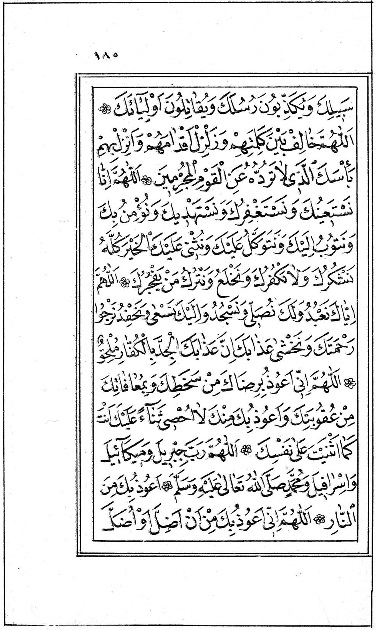 ٩٨٥
سَبِيلِكَ وَيُكَذِّبُونَ رُسُلَكَ وَيُقَاتِلُونَ اَوْلِيَائَكَ ❁
اَللّٰهُمَّ خَالِفْ بَيْنَ كَلِمَتِهِمْ وَزَلْزِلْ اَقْدَامَهُمْ وَاَنْزِلْ بِهِمْ
بَأْسَكَ الَّذِي لَا تَرُدُّهُ عَنِ الْقَوْمِ الْمُجْرِمِينَ ❁ اَللّٰهُمَّ اِنَّا
نَسْتَعِينُكَ وَنَسْتَغْفِرُكَ وَنَسْتَهْدِيكَ وَنُؤْمِنُ بِكَ
وَنَتُوبُ اِلَيْكَ وَنَتَوَكَّلُ عَلَيْكَ وَنُثْنِي عَلَيْكَ الْخَيْرَ كُلَّهُ
نَشْكُرُكَ وَلَا نَكْفُرُكَ وَنَخْلَعُ وَنَتْرُكُ مَنْ يَفْجُرُكَ ❁ اَللّٰهُمَّ
اِيَّاكَ نَعْبُدُ وَلَكَ نُصَلِّي وَنَسْجُدُ وَاِلَيْكَ نَسْعٰى وَنَحْفِدُ نَرْجُوا
رَحْمَتَكَ وَنَخْشٰى عَذَابَكَ اِنَّ عَذَابَكَ الْجِدَّ بِالْكُفَّارِ مُلْحِقٌ
❁ اَللّٰهُمَّ اِنِّي اَعُوذُ بِرِضَاكَ مِنْ سَخَطِكَ وَبِمُعَافَاتِكَ
مِنْ عُقُوبَتِكَ وَاَعُوذُ بِكَ مِنْكَ لَا اُحْصِي ثَنَاءً عَلَيْكَ اَنْتَ
كَمَا اَثْنَيْتَ عَلٰى نَفْسِكَ ❁ اَللّٰهُمَّ رَبَّ جِبْرِيلَ وَمِيكَآئِيلَ
وَاِسْرَافِيلَ وَمُحَمَّدٍ صَلَّى اللّٰهُ تَعَالٰى عَلَيْهِ وَسَلَّمَ ❁ اَعُوذُ بِكَ مِنَ
النَّارِ ❁ اَللّٰهُمَّ اِنِّي اَعُوذُ بِكَ مِنْ اَنْ اَضِلَّ اَوْ اُضَلَّ